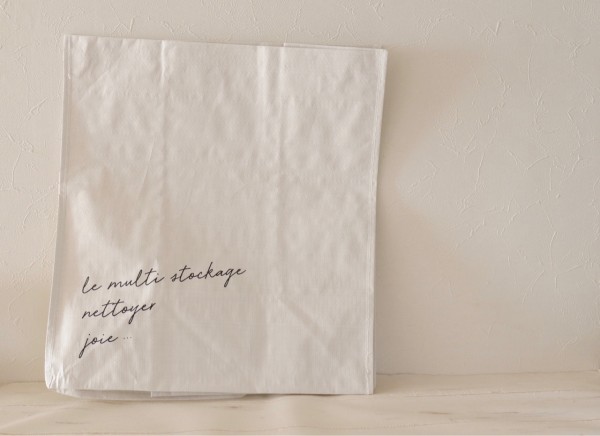 le multi stockage
nettoyer
joie..